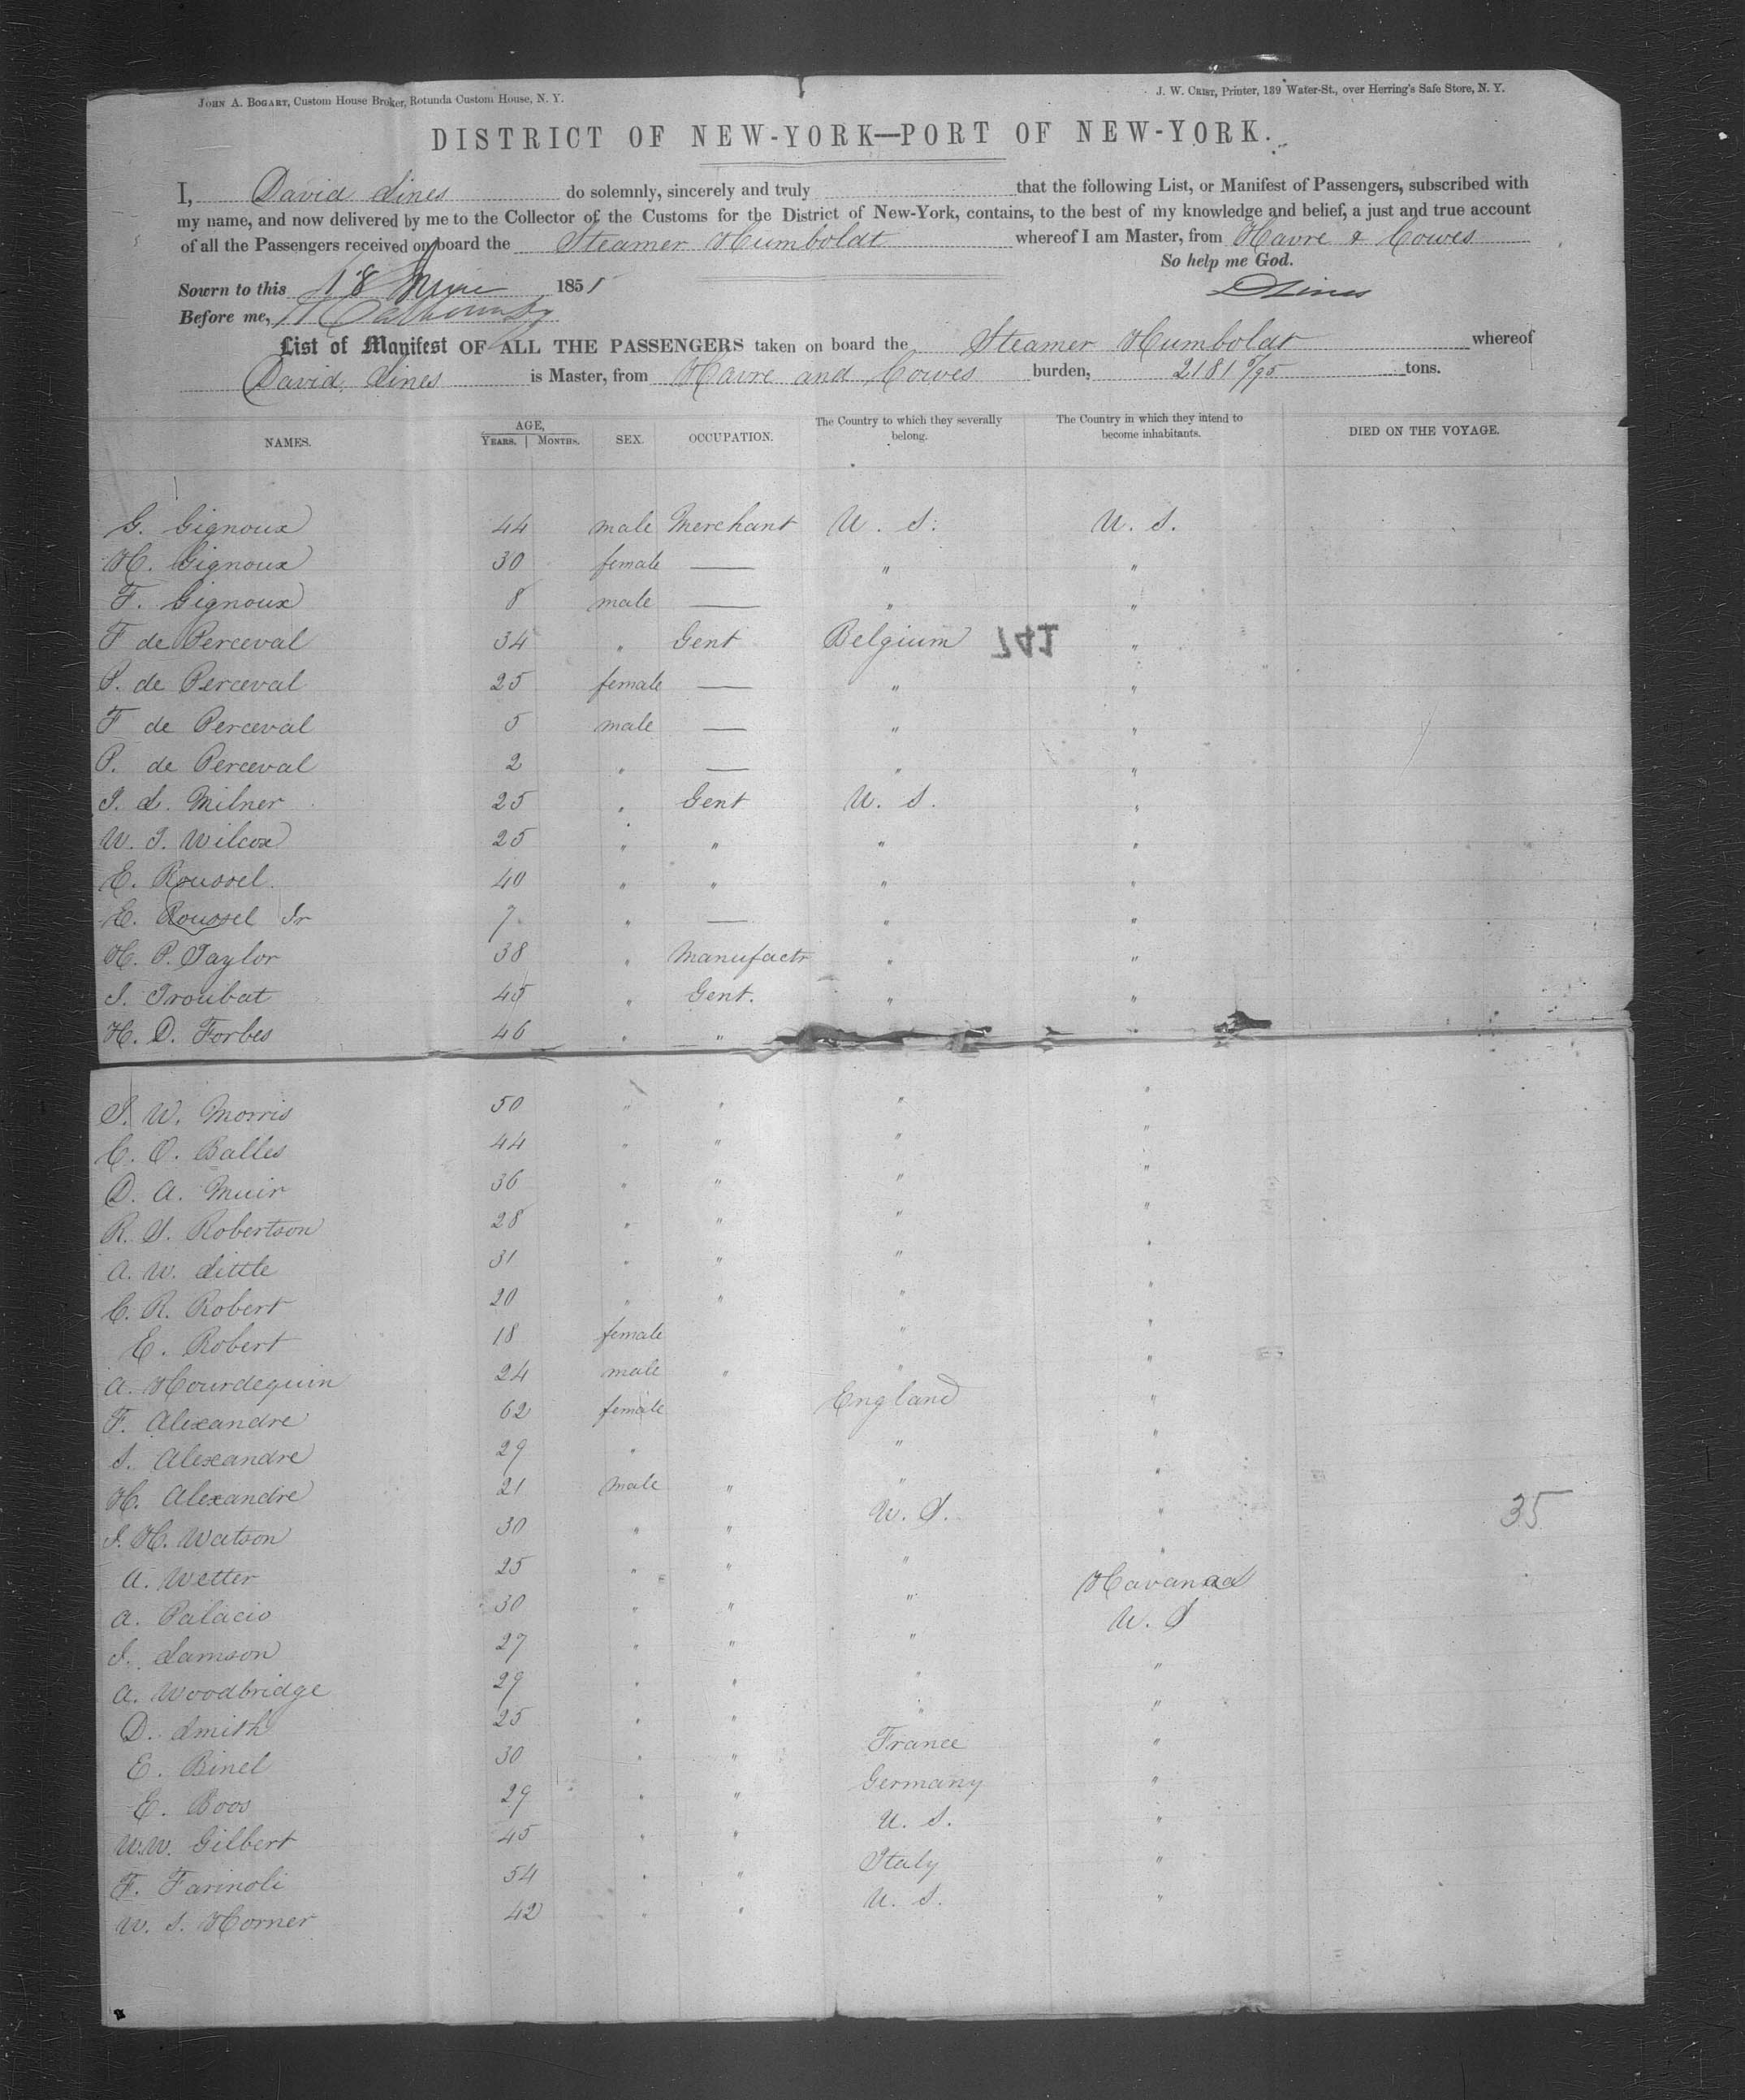 John A. Bogart, Custom House Broker, Rotunda Custom House, N. Y.
J. W. Crist, Printer, 139 Water-St., over Herring's Safe Store, N. Y.
DISTRICT OF NEW-YORK—PORT OF NEW-YORK.
I, David Lines do solemnly, sincerely and truly that the following List, or Manifest of Passengers, subscribed with
my name, and now delivered by me to the Collector of the Customs for the District of New-York, contains, to the best of my knowledge and belief, a just and true account
of all the Passengers received on board the Steamer Humboldt whereof I am Master, from Havre & Cowes
So help me God.
Sowrn to this 18 June 1851
D Lines
Before me,
List of Manifest OF ALL THE PASSENGERS taken on board the Steamer Humboldt whereof
David Lines is Master, from Havre and Cowes burden, 2181 5/95 tons.
NAMES. AGE, YEARS. MONTHS. SEX. OCCUPATION. The Country to which they severally belong. The Country in which they intend to become inhabitants. DIED ON THE VOYAGE.
G. Gignoux 44 male Merchant U. S. U. S.
H. Gignoux 30 female — " "
F. Gignoux 8 male — " "
F de Perceval 34 " Gent Belgium "
741
P. de Perceval 25 female — " "
F de Perceval 5 male — " "
P. de Perceval 2 " — " "
J. L. Milner 25 " Gent U. S. "
W. J. Wilcox 25 " " " "
E. Roussel 40 " " " "
E. Roussel Jr 7 " — " "
H. P. Taylor 38 " Manufactr " "
J. Troubat 45 " Gent. " "
H. D. Forbes 46 " " "
J. W. Morris 50 " " " "
C. O. Balles 44 " " " "
D. A. Muir 36 " " " "
R. S. Robertson 28 " " " "
A. W. Little 31 " " " "
C. R. Robert 20 " " " "
E. Robert 18 female " "
A. Hourdequin 24 male " " "
F. Alexandre 62 female England "
S. Alexandre 29 " " "
H. Alexandre 21 male " " "
J. H. Watson 30 " " U. S. "
35
A. Wetter 25 " " " "
A. Palacio 30 " " " Havanna
J. Lamson 27 " " " U. S
A. Woodbridge 29 " " " "
D. Smith 25 " " " "
E. Binel 30 " " France "
E. Boos 29 " " Germany "
W. W. Gilbert 45 " " U. S. "
F. Farinoli 54 " " Italy "
W. S. Horner 42 " " U. S. "